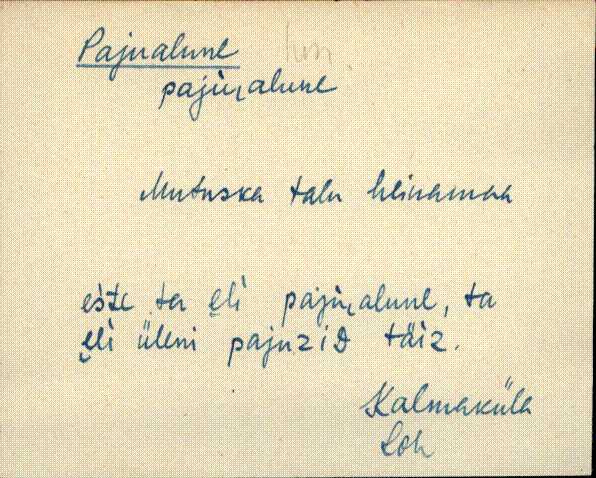 Pajualune hm.
pajuꞈalune
Mutuska talu heinamaa
eśte ta e̬li pajuꞈalune, ta
e̬li üleni pajuziD täiz.
Kalmaküla
Loh